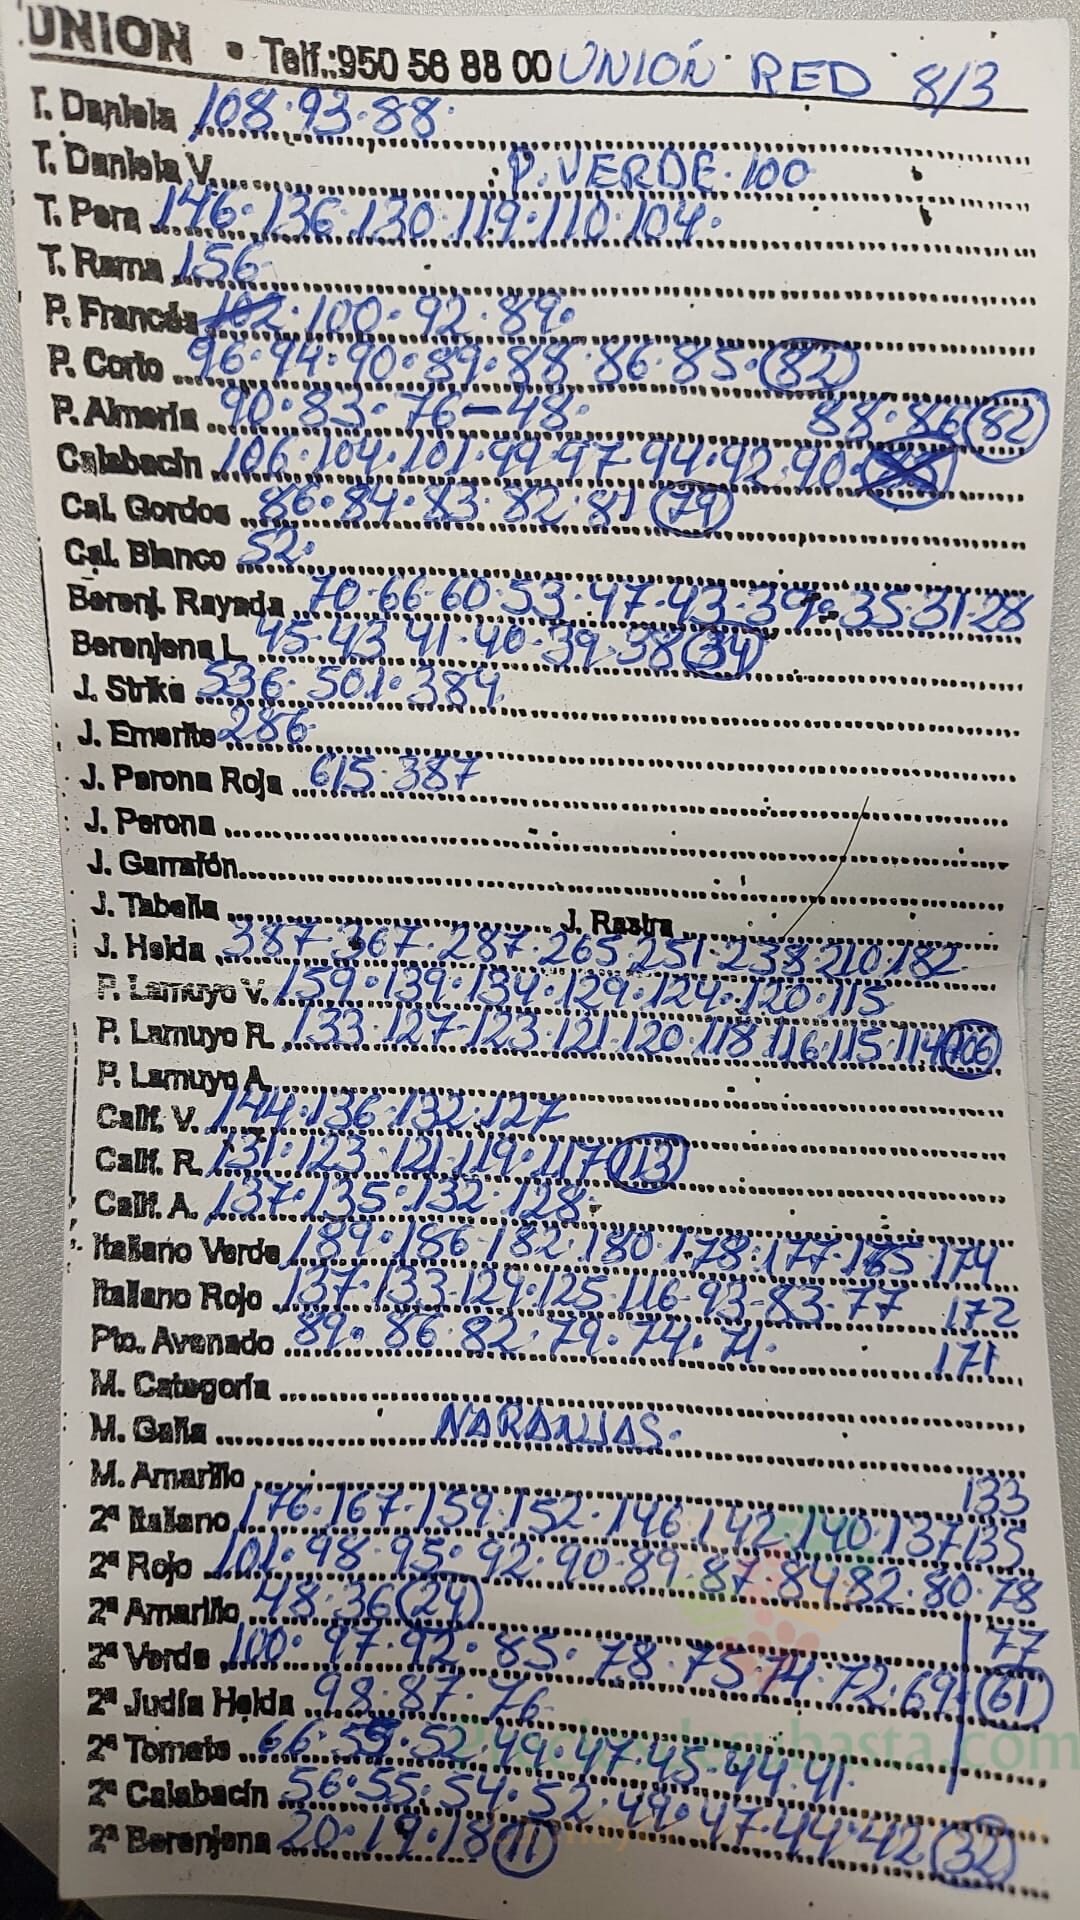 UNION • Telf.:950 56 88 00 UNIÓN RED 8/3
T. Daniela 108·93·88·
T. Daniela V. P. VERDE·100
T. Pera 146·136·130·119·110·104·
T. Rama 156
P. Francés 102·100·92·89·
P. Corto 96·94·90·89·88·86·85·(82)
P. Almería 90·83·76-48· 88·86(82)
Calabacín 106·104·101·99·97·94·92·90·
Cal. Gordos 86·84·83·82·81(79)
Cal. Blanco 52·
Berenj. Rayada 70·66·60·53·47·43·39·35·31·28
Berenjena L. 45·43·41·40·39·38(34)
J. Strike 536·501·384
J. Emerite 286
J. Perona Roja 615·387
J. Perona
J. Garrafón
J. Tabella J. Rastra
J. Helda 387·367·287·265·251·238·210·182
P. Lamuyo V. 159·139·134·129·124·120·115
P. Lamuyo R. 133·127·123·121·120·118·116·115·114(106)
P. Lamuyo A.
Calif. V. 144·136·132·127
Calif. R. 131·123·121·119·117(113)
Calif. A. 137·135·132·128·
Italiano Verde 189·186·182·180·178·177·175·174
Italiano Rojo 137·133·129·125·116·93·83·77 172
Pto. Avenado 89·86·82·79·74·71· 171
M. Categoría
M. Galia NARANJAS·
M. Amarillo 133
2ª Italiano 176·167·159·152·146·142·140·137 135
2ª Rojo 101·98·95·92·90·89·87·84 82·80·78
2ª Amarillo 48·36(24) 77
2ª Verde 100·97·92·85·78·75·74·72·69·(61)
2ª Judía Helda 98·87·76
2ª Tomate 66·55·52·49·47·45·44·41
2ª Calabacín 56·55·54·52·49·47·44·42(32)
2ª Berenjena 20·19·18(11)